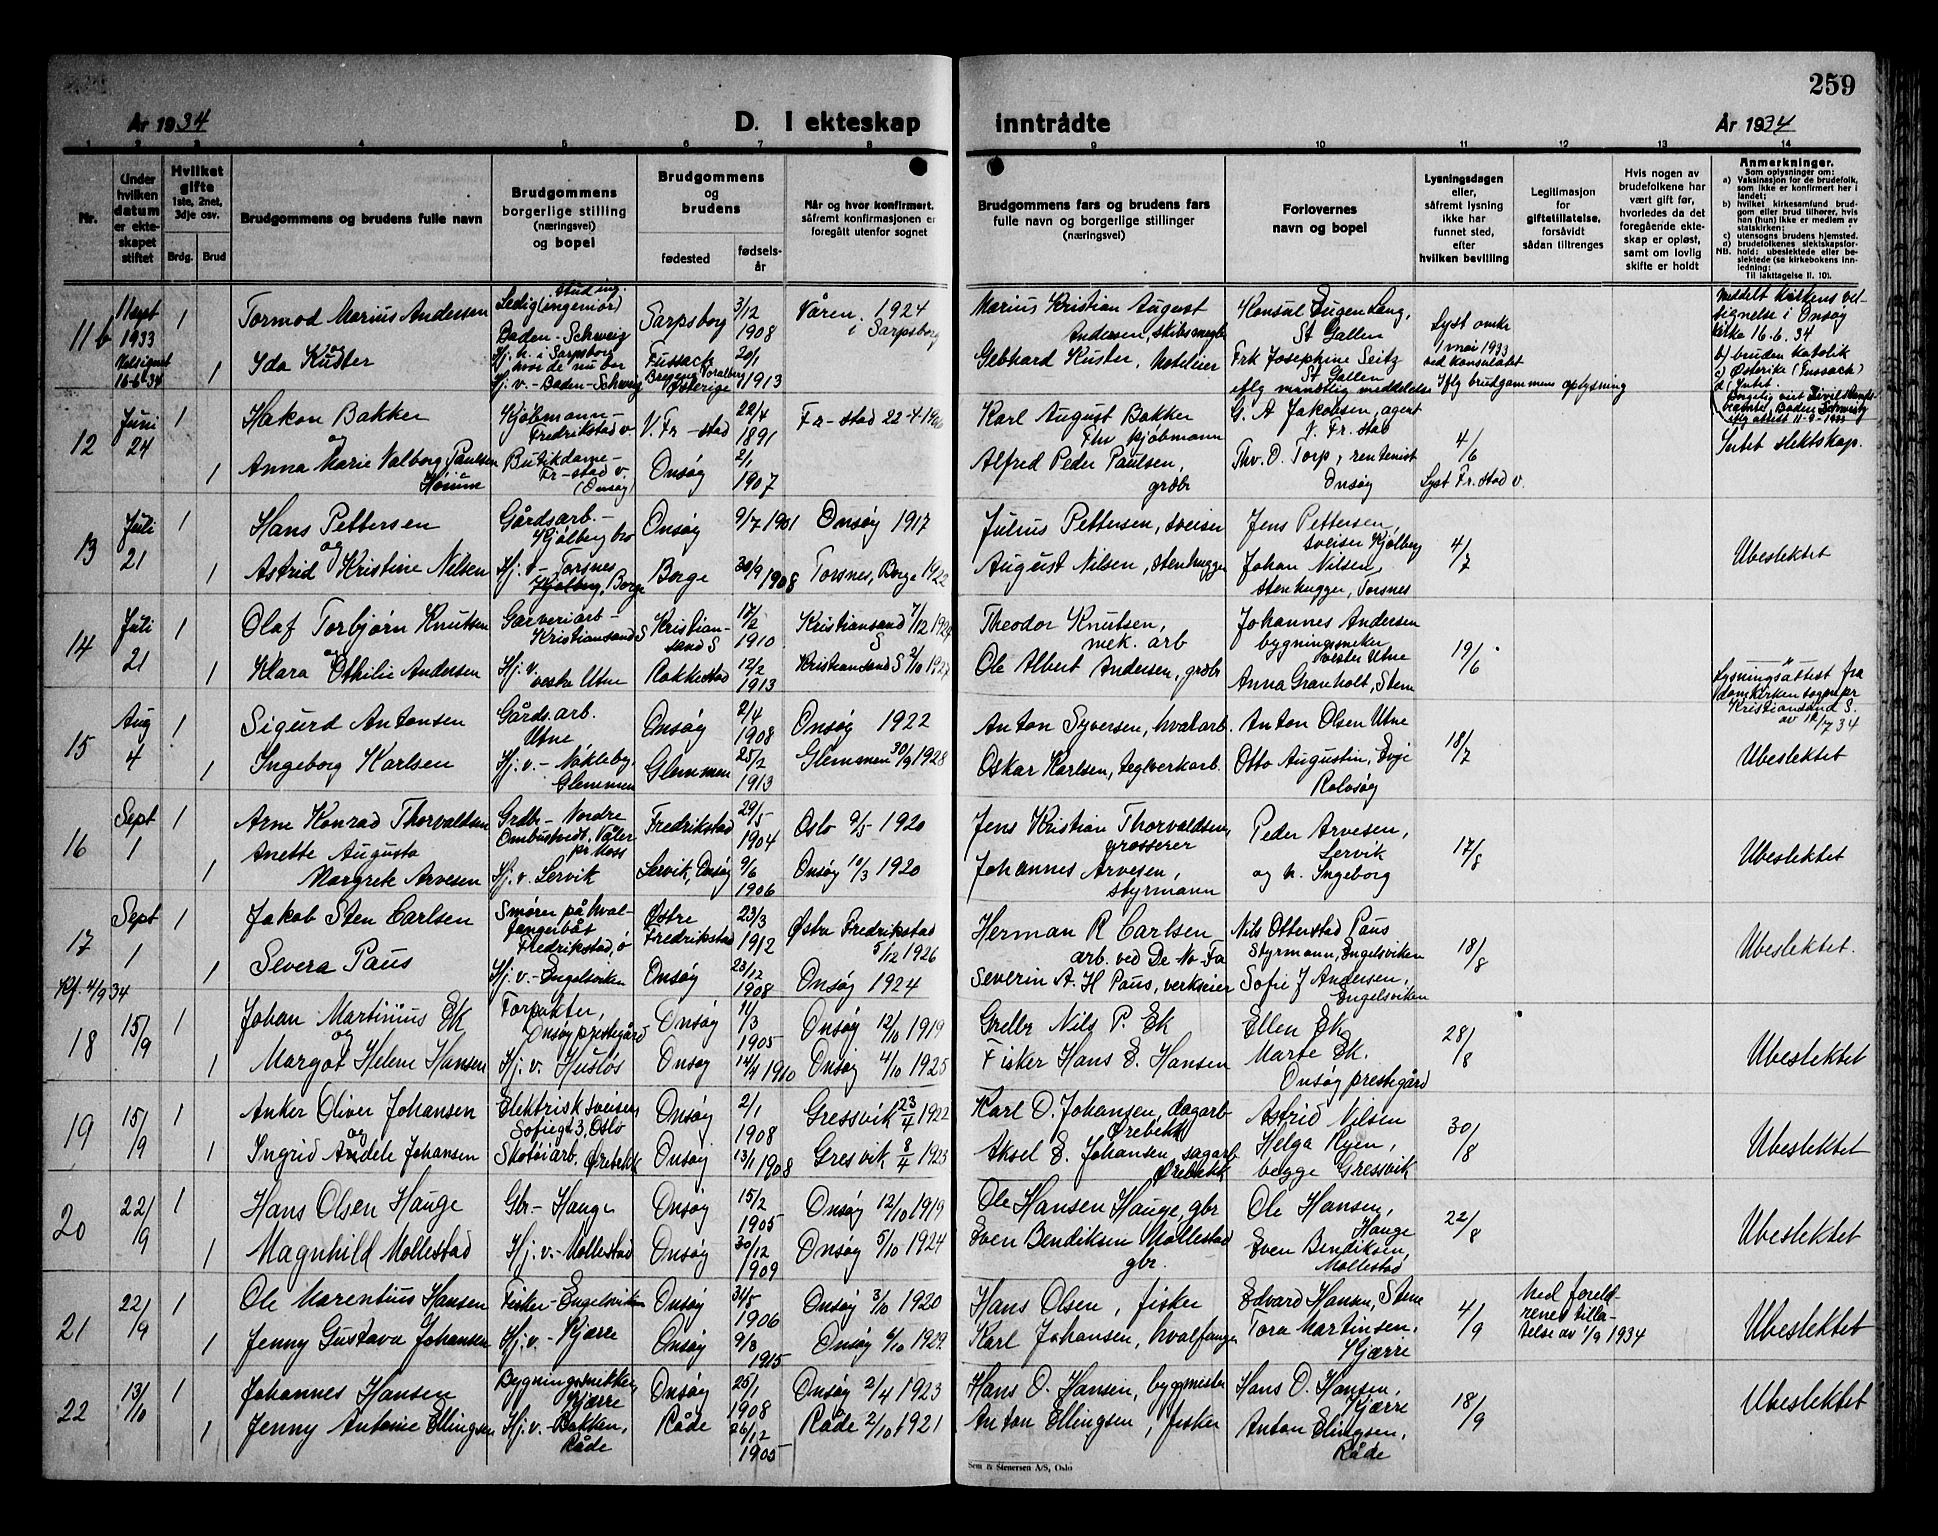 259
År 1934
D. I ekteskap
inntrådte
År 1934
1 2 3 4 5 6 7 8 9 10 11 12 13 14
Nr.
Under
hvilken
datum
er ekte-
skapet
stiftet
Hvilket
gifte
1ste, 2net,
3dje osv.
Brdg. Brud
Brudgommens og brudens fulle navn
Brudgommens
borgerlige stilling
(næringsvei)
og bopel
Brudgommens
og
brudens
fødested
fødsels-
år
Når og hvor konfirmert.
såfremt konfirmasjonen er
foregått utenfor sognet
Brudgommens fars og brudens fars
fulle navn og borgerlige stillinger
(næringsvei)
Forlovernes
navn og bopel
Lysningsdagen
eller,
såfremt lysning
ikke har
funnet sted,
efter
hvilken bevilling
Legitimasjon
for
giftetillatelse,
forsåvidt
sådan tiltrenges
Hvis nogen av
brudefolkene har
vært gift før,
hvorledes da det
foregående ekte-
skap er opløst,
samt om lovlig
skifte er holdt
Anmerkninger.
Som oplysninger om:
a) Vaksinasjon for de brudefolk,
som ikke er konfirmert her i
landet;
b) hvilket kirkesamfund brud-
gom eller brud tilhører, hvis
han (hun) ikke er medlem av
statskirken;
c) utensogns brudens hjemsted.
d) brudefolkenes slektskapsfor-
hold: ubeslektede eller be-
slektede (se kirkebokens inn-
ledning:
NB.
Til iakttagelse II. 10).
11 b
11 sept
1933
Velsignet
16-6-34
1
Tormod Marius Andersen
stud ing.
Ledig (ingeniør)
Baden-Schweiz
Hj. h. i Sarpsborg
hvor de nu bor
Sarpsborg
3/12
1908
Våren 1924
i Sarpsborg
Marius Kristian August
Andersen, skibsmegler
Konsul Eugen Lang,
St Gallen
Lyst omkr
1 mai 1933
ved konsulatet
Meddelt kirkens vel-
signelse i Onsøy
kirke 16.6.34
og
Ida Kuster
1
Hj. v. - Baden-Schweiz
Fussach
Bregenz Voralberg
Østerige
20/1
1913
Gebhard Kuster, Hotelier
Frk Josephine Seitz
St Gallen
eflg mundtlig meddelelse
Iflg brudgommens oplysning
b) bruden katolik
c) Østerike (Fussach)
d) Intet
12
Juni
24
1
Hakon Bakker
og
Kjøbmann-
Fredrikstad v
V. Fr-stad
22/4
1891
Karl August Bakker
Fhv kjøbmann
G. A Jakobsen, agent
V. Fr. stad
4/6
Lyst Fr. stad v.
Intet slektskap.
1
Anna Marie Valborg Paulsen
Butikdame-
Fr-stad v-
(Onsøy)
Onsøy
2/1
1907
Alfred Peder Paulsen,
grdbr
Thv. O. Torp, rentenist
Onsøy
13
Juli
21
1
Hans Pettersen
og
Gårdsarb.-
Kjølberg bro
Onsøy
9/7 1901
Onsøy 1917
Julius Pettersen, sveiser
Jens Pettersen,
sveiser Kjølberg
4/7
Ubeslektet
1
Astrid Kristine Nilsen
Hj. v- Torsnes
Kjølberg, Borge
Borge
30/9 1908
Torsnes, Borge 1922
August Nilsen, stenhugger
Johan Nilsen,
stenhugger, Torsnes
14
Juli
21
1
Olaf Torbjørn Knutsen
og
Garveriarb-
Kristiansand S
Kristian-
sand S
17/2
1910
Kristiansand 7/12 1924
S
Theodor Knutsen,
mek. arb
Johannes Andersen
bygningssneker
vestre Utne
19/6
1
Klara Othilie Andersen
Hj. v.
vestre Utne
Rakkestad
12/2
1913
Kristiansand S 2/10 1927
Ole Albert Andersen, grdbr
Anna Granholt, Stene
Lysningsattest fra
domkirken sogn pr
Kristiansand S.
av 12/7 34
15
Aug
4
1
Sigurd Antonsen
Gårds.arb.
Utne
Onsøy
2/4
1908
Onsøy 1922
Anton Syversen, hvalarb.
Anton Olsen Utne
18/7
Ubeslektet
1
Ingeborg Karlsen
Hj. v. - Nøkleby,
Glemmen
Glemmen
25/2
1913
Glemmen 30/9 1928
Oskar Karlsen, teglverkarb.
Otto Augustin, Evje
Rolvsøy
16
Sept
1
1
Arne Konrad Thorvaldsen
Grdbr- Nordre
Ombustvedt, Våler
pr. Moss
Fredrikstad
29/5
1904
Oslo 9/5 1920
Jens Kristian Thorvaldsen,
grosserer
Peder Arvesen,
Lervik
17/8
Ubeslektet
1
Anette Augusta
Margrete Arvesen
Hj. v. Lervik
Lervik, Onsøy
9/6
1906
Onsøy 10/3 1920
Johannes Arvesen,
styrmann
og h. Ingeborg
17
Sept
1
1
Jakob Sten Carlsen
Smører på hval-
fangerbåt
Fredrikstad, ø
Østre
Fredrikstad
23/3
1912
Østre Fredrikstad
5/12 1926
Herman R Carlsen
arb. ved De-No-Fa
Nils Otterstad Paus
Styrmann, Engelsviken
18/8
Ubeslektet.
1
Severa Paus
Hj. v. - Engelsviken
Onsøy
23/12
1908
Onsøy 1924
Severin A. H Paus, verkseier
Sofie J Andersen,
Engelsviken
Kf. 4/9 34
18
15/9
1
Johan Martinius Ek
og
Forpakter,
Onsøy prestegård
Onsøy
14/3
1905
Onsøy 12/10 1919
Grdbr Nils P. Ek
Ellen Ek
28/8
Ubeslektet
1
Margot Helene Hansen
Hj. v. Husløs
Onsøy
14/4 1910
Onsøy 4/10 1925
Fisker Hans E. Hansen
Marte Ek.
Onsøy prestegård
19
15/9
1
Anker Oliver Johansen
og
Elektrisk sveiser,
Sofiegt 3, Oslo
Onsøy
2/1
1908
Gressvik 23/4 1922
Karl O. Johansen, dagarb
Ørebekk
Astrid Nilsen
30/8
Ubeslektet
1
Ingrid Andele Johansen
Skotøiarb. Ørebekk
Onsøy
13/1 1908
Gresvik 8/4 1923
Aksel E. Johansen, sagarb
Ørebekk
Helga Ryen,
begge Gressvik
20
22/9
1
Hans Olsen Hauge
Gbr- Hauge
Onsøy
15/2
1905
Onsøy 12/10 1919
Ole Hansen Hauge, gbr
Ole Hansen,
Hauge
22/8
Ubeslektet
1
Magnhild Mollestad
Hj. v.- Mollestad
Onsøy
30/12
1909
Onsøy 5/10 1924
Even Bendiksen Mollestad
gbr.
Even Bendiksen,
Mollestad
21
22/9
1
Ole Marentius Hansen
Fisker- Engelsviken
Onsøy
31/5
1906
Onsøy 3/10 1920
Hans Olsen, fisker
Edvard Hansen, Stene
4/9
Med foreld-
renes tilla-
telse av 1/9 1934
Ubeslektet
1
Jenny Gustava Johansen
Hj. v. - Kjærre
Onsøy
9/3
1915
Onsøy 6/10 1929
Karl Johansen, hvalfanger
Tora Martinsen,
Kjærre
22
13/10
1
Johannes Hansen
Bygningssnikker,
Kjærre
Onsøy
25/1
1908
Onsøy 2/4 1923
Hans O. Hansen, byggmester
Hans O. Hansen,
Kjærre
18/9
Ubeslektet
1
Jenny Antonie Ellingsen
Hj. v. - Bakken,
Råde
Råde
26/12
1905
Råde 2/10 1921
Anton Ellingsen, fisker
Anton Elingsen,
Råde
Sem & Stenersen A/S, Oslo